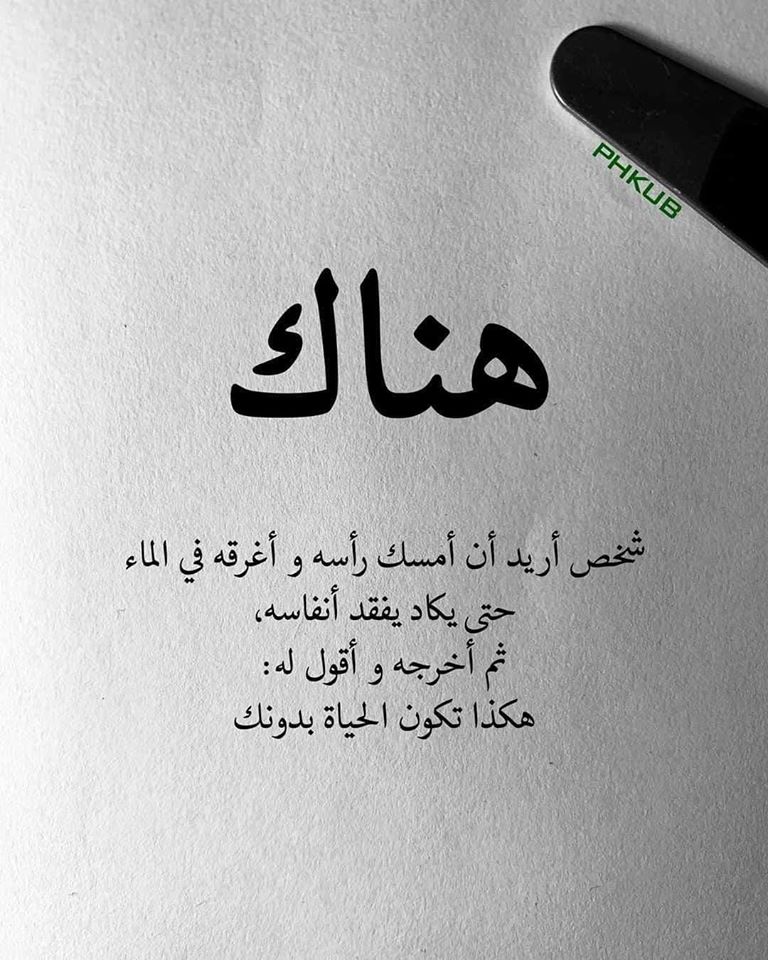 PHKUB
هناك
شخص أريد أن أمسك رأسه و أغرقه في الماء
حتى يكاد يفقد أنفاسه،
ثم أخرجه و أقول له:
هكذا تكون الحياة بدونك